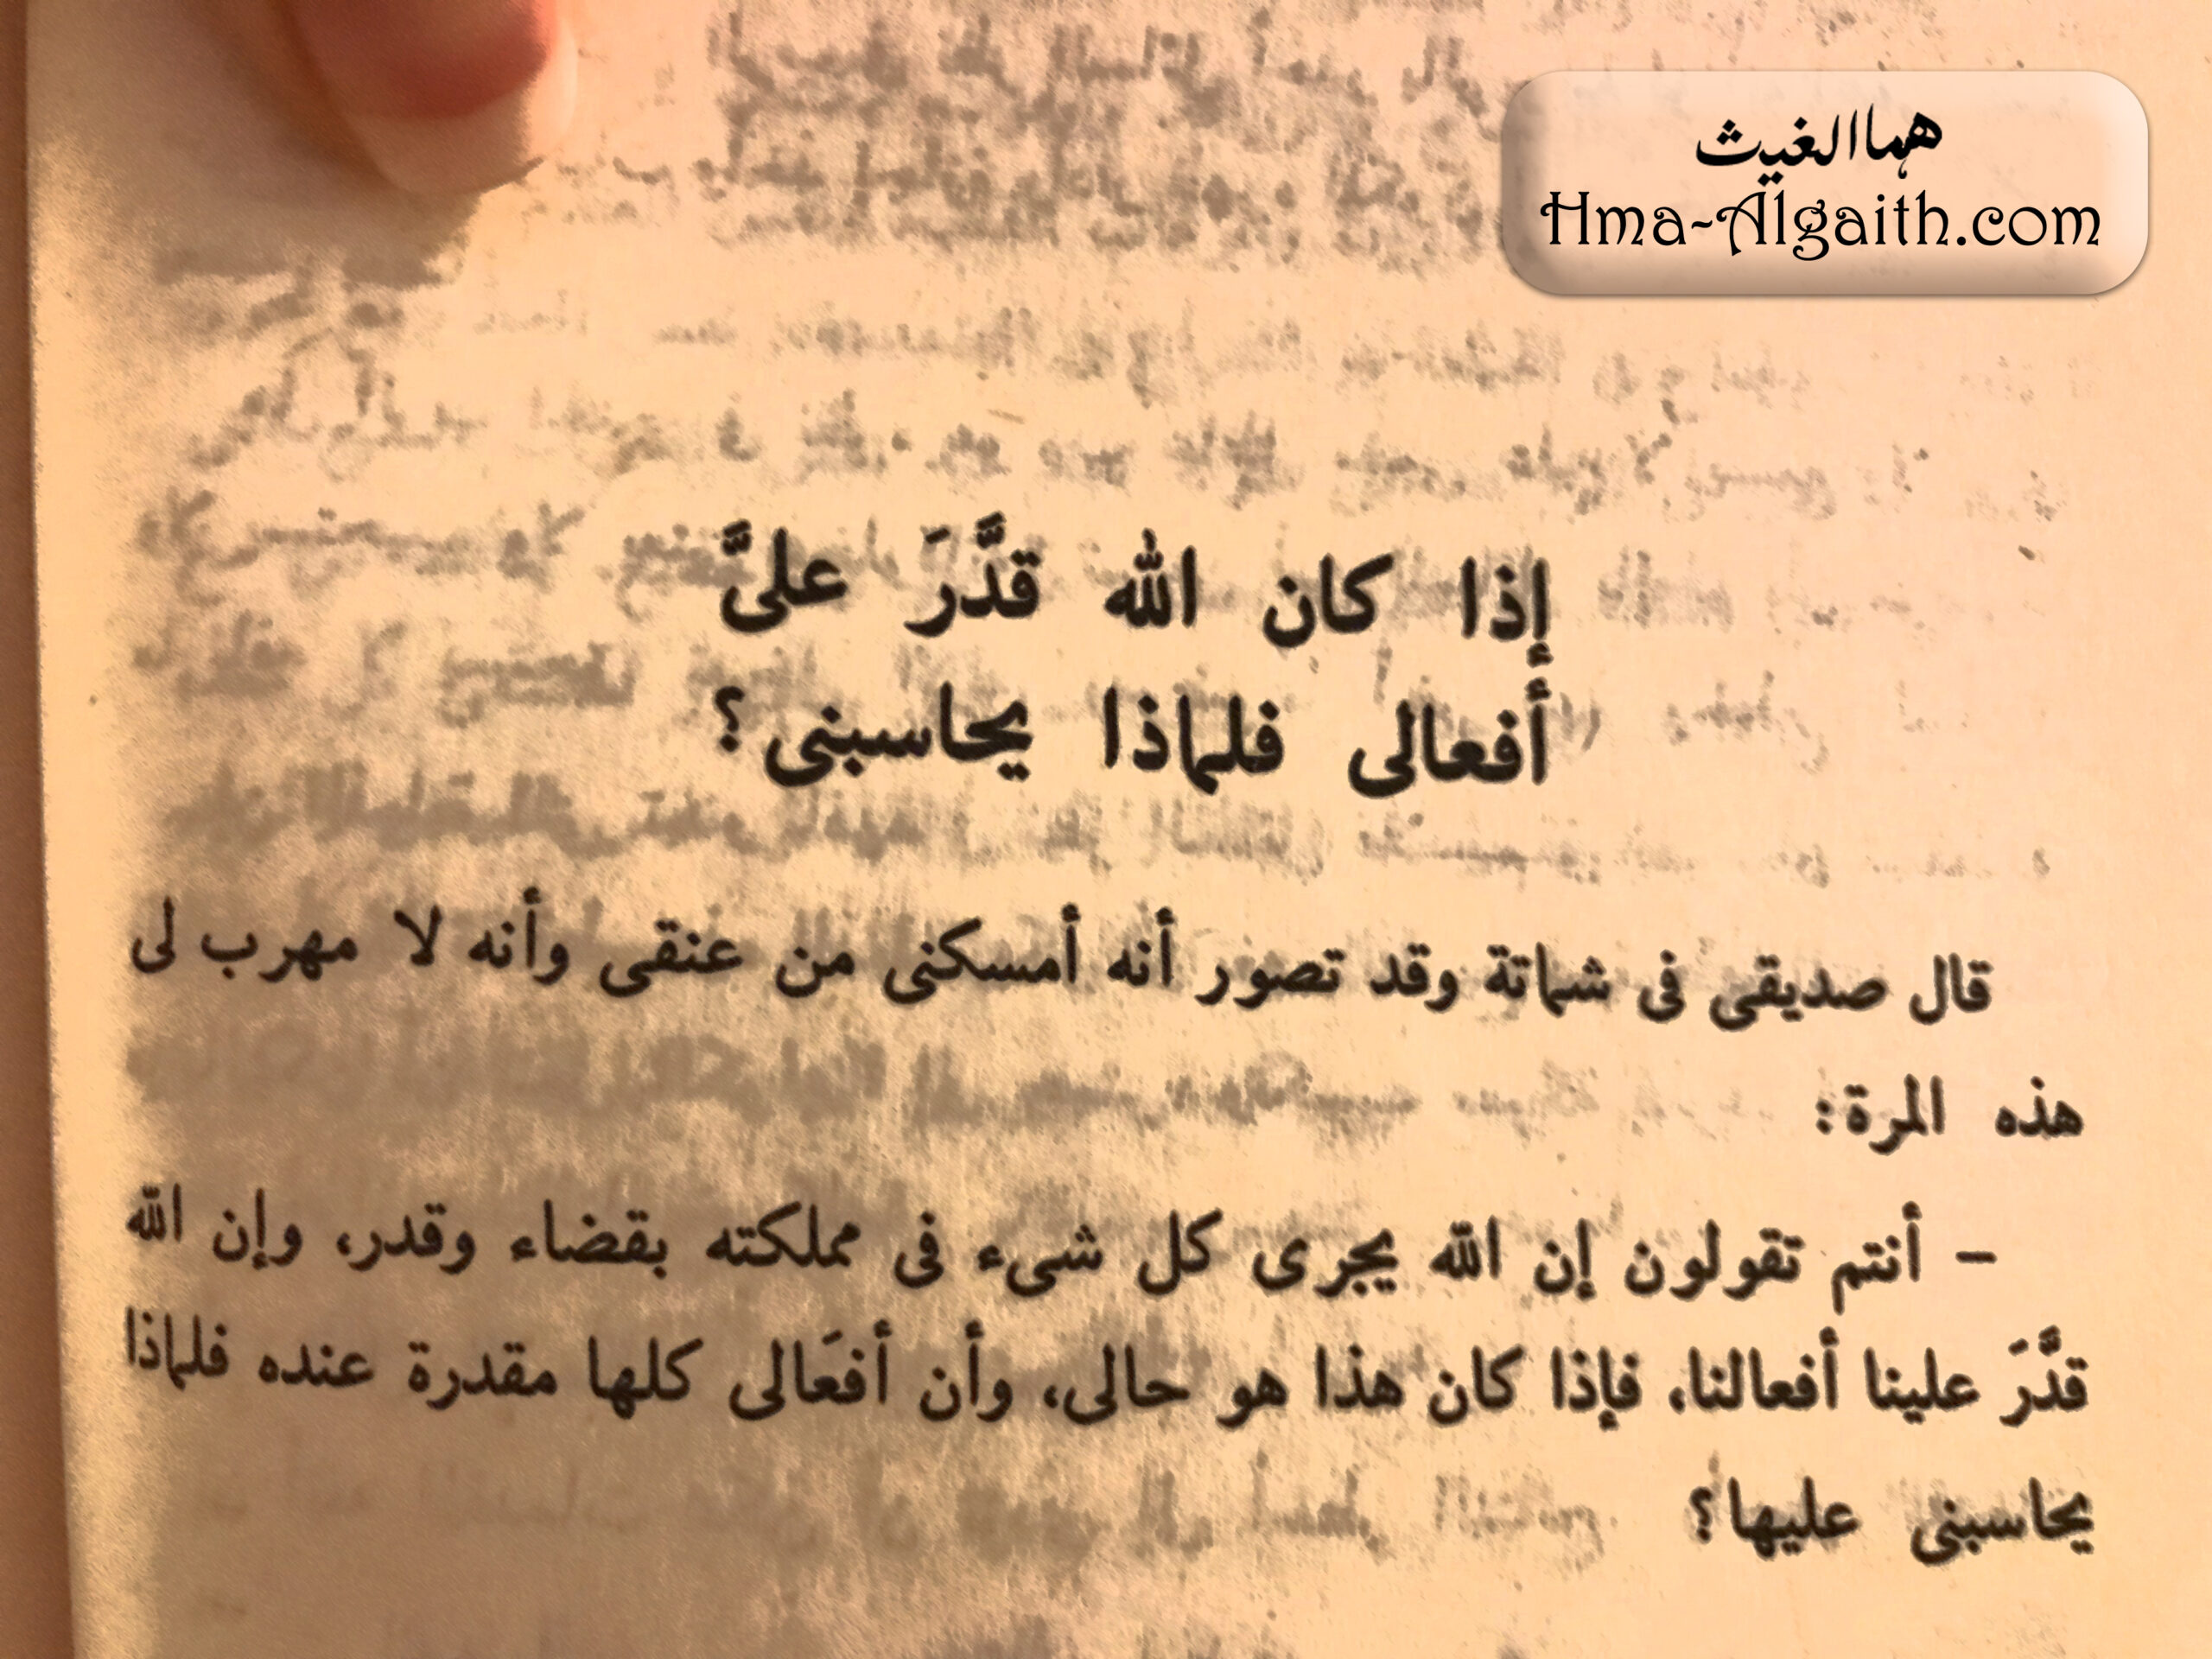 هما الغيث
Hma-Algaith.com
إذا كان الله قدَّرَ علىَّ
أفعالى فلماذا يحاسبنى؟
قال صديقى فى شماتة وقد تصور أنه أمسكنى من عنقى وأنه لا مهرب لى
هذه المرة:
– أنتم تقولون إن الله يجرى كل شىء فى مملكته بقضاء وقدر، وإن الله
قدَّرَ علينا أفعالنا، فإذا كان هذا هو حالى، وأن أفعَالى كلها مقدرة عنده فلماذا
يحاسبنى عليها؟